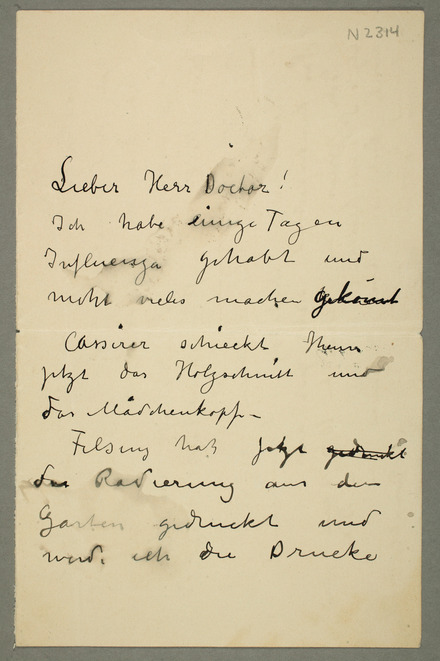 N 2314
Lieber Herr Doctor!
Ich habe einige Tagen
Influenza gehabt und
nicht vieles machen gekönnt
Cassirer schieckt Ihnen
jetzt das Holzschnitt und
das Mädchenkopf –
Felsing hat jetzt gedruckt
die Radierung aus dem
Garten gedruckt und
werde ich die Drucke